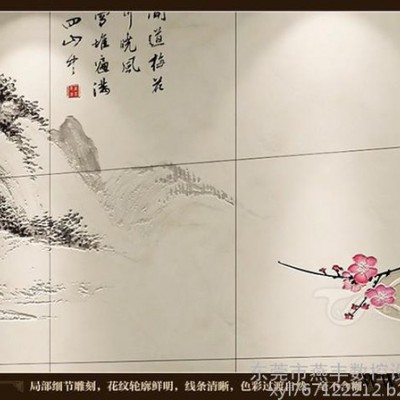 闻道梅花
坼晓风
雪堆遍满
四山中
局部细节雕刻，花纹轮廓鲜明，线条清晰，色彩过渡自然，毫不含糊
东莞市燕丰数控设
xyl767122212.b2